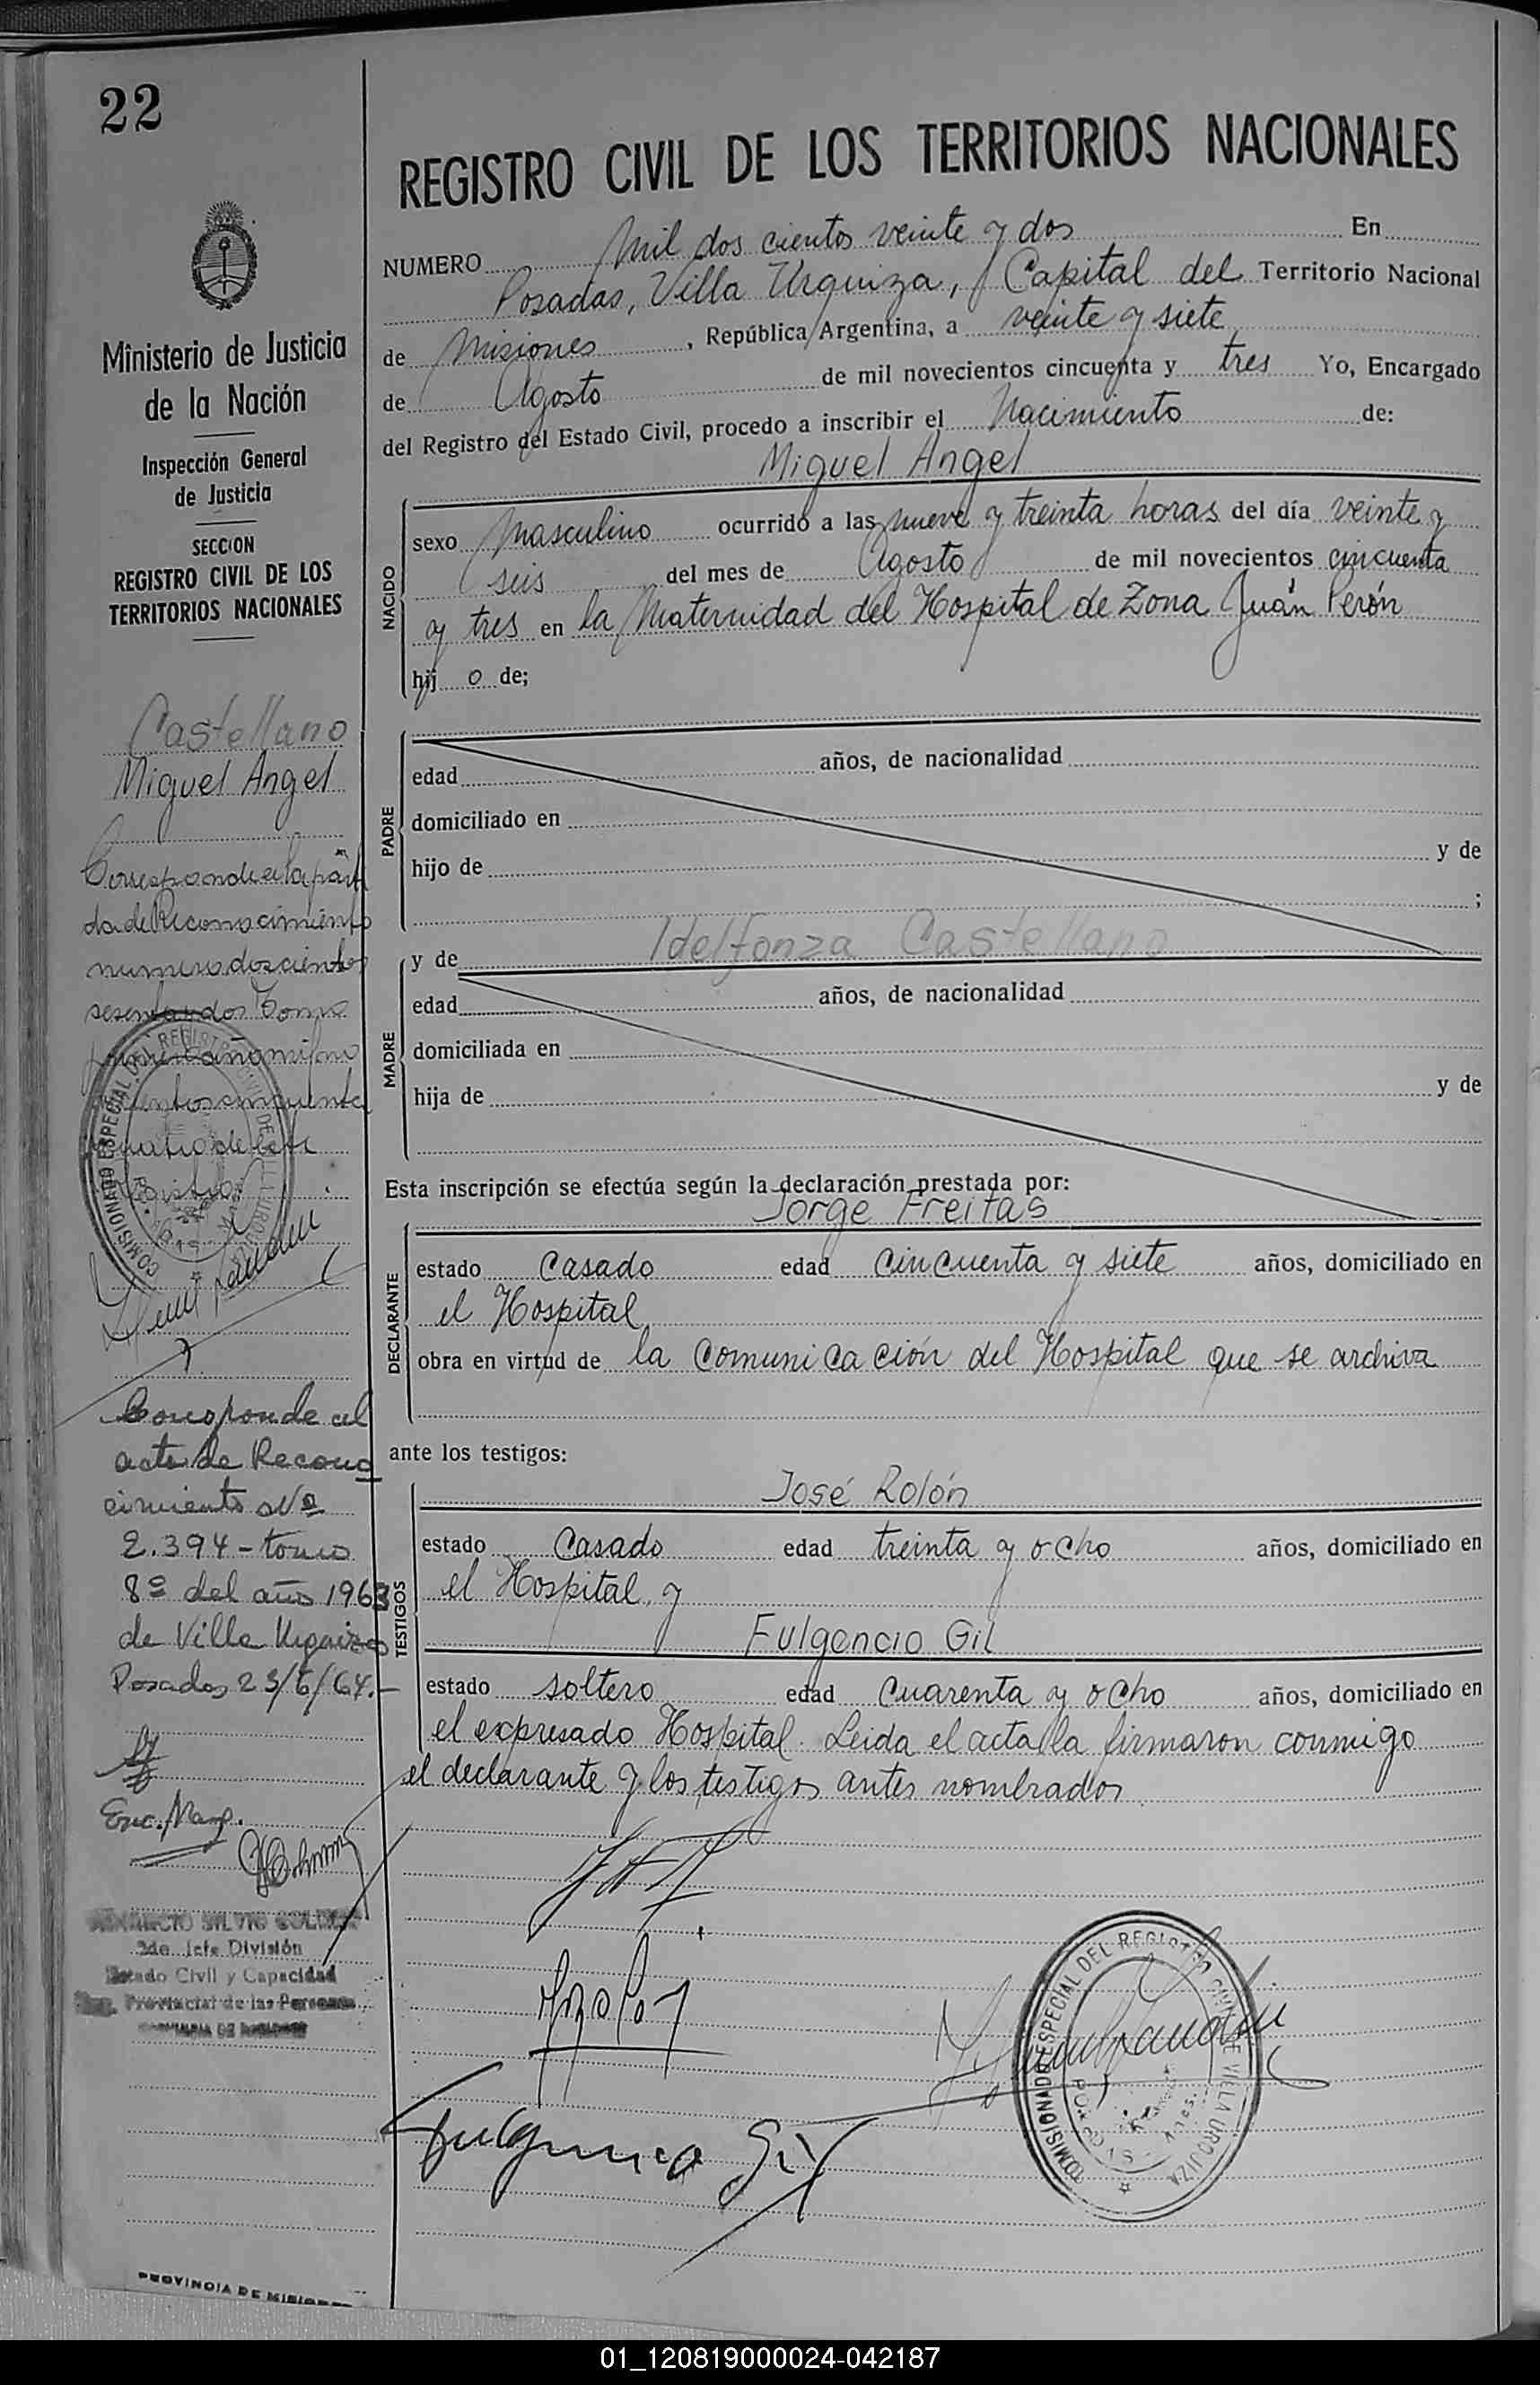 22
Ministerio de Justicia
de la Nación
Inspección General
de Justicia
SECCION
REGISTRO CIVIL DE LOS
TERRITORIOS NACIONALES
Castellano
Miguel Angel
Corresponde a la parti
da de Reconocimiento
numero doscientos
sesenta y dos Tomo
primero año mil no
vecientos cincuenta
y cuatro de este
Registro
Corresponde al
acta de Recono
cimiento Nº
2.394 - tomo
8º del año 1963
de Villa Urquiza
Posadas 23/6/64.-
Enc. Marg.
2do. Jefe División
Estado Civil y Capacidad
Provincial de las Personas
PROVINCIA DE MISIONES
REGISTRO CIVIL DE LOS TERRITORIOS NACIONALES
NUMERO Mil dos cientos veinte y dos En
Posadas, Villa Urquiza, Capital del Territorio Nacional
de Misiones, República Argentina, a veinte y siete
de Agosto de mil novecientos cincuenta y tres Yo, Encargado
del Registro del Estado Civil, procedo a inscribir el Nacimiento de:
Miguel Angel
NACIDO
sexo Masculino ocurrido a las nueve y treinta horas del día veinte y
seis del mes de Agosto de mil novecientos cincuenta
y tres en la Maternidad del Hospital de Zona Juán Perón
hij o de;
PADRE
edad años, de nacionalidad
domiciliado en
hijo de y de
;
y de Idelfonza Castellano
MADRE
edad años, de nacionalidad
domiciliada en
hija de y de
Esta inscripción se efectúa según la declaración prestada por:
Jorge Freitas
DECLARANTE
estado Casado edad Cincuenta y siete años, domiciliado en
el Hospital
obra en virtud de la Comunicación del Hospital que se archiva
ante los testigos:
José Rolón
TESTIGOS
estado Casado edad treinta y ocho años, domiciliado en
el Hospital y
Fulgencio Gil
estado soltero edad Cuarenta y ocho años, domiciliado en
el expresado Hospital. Leida el acta la firmaron conmigo
el declarante y los testigos antes nombrados
Fulgencio Gil
COMISIONADO ESPECIAL DEL REGISTRO CIVIL DE VILLA URQUIZA
01_120819000024-042187